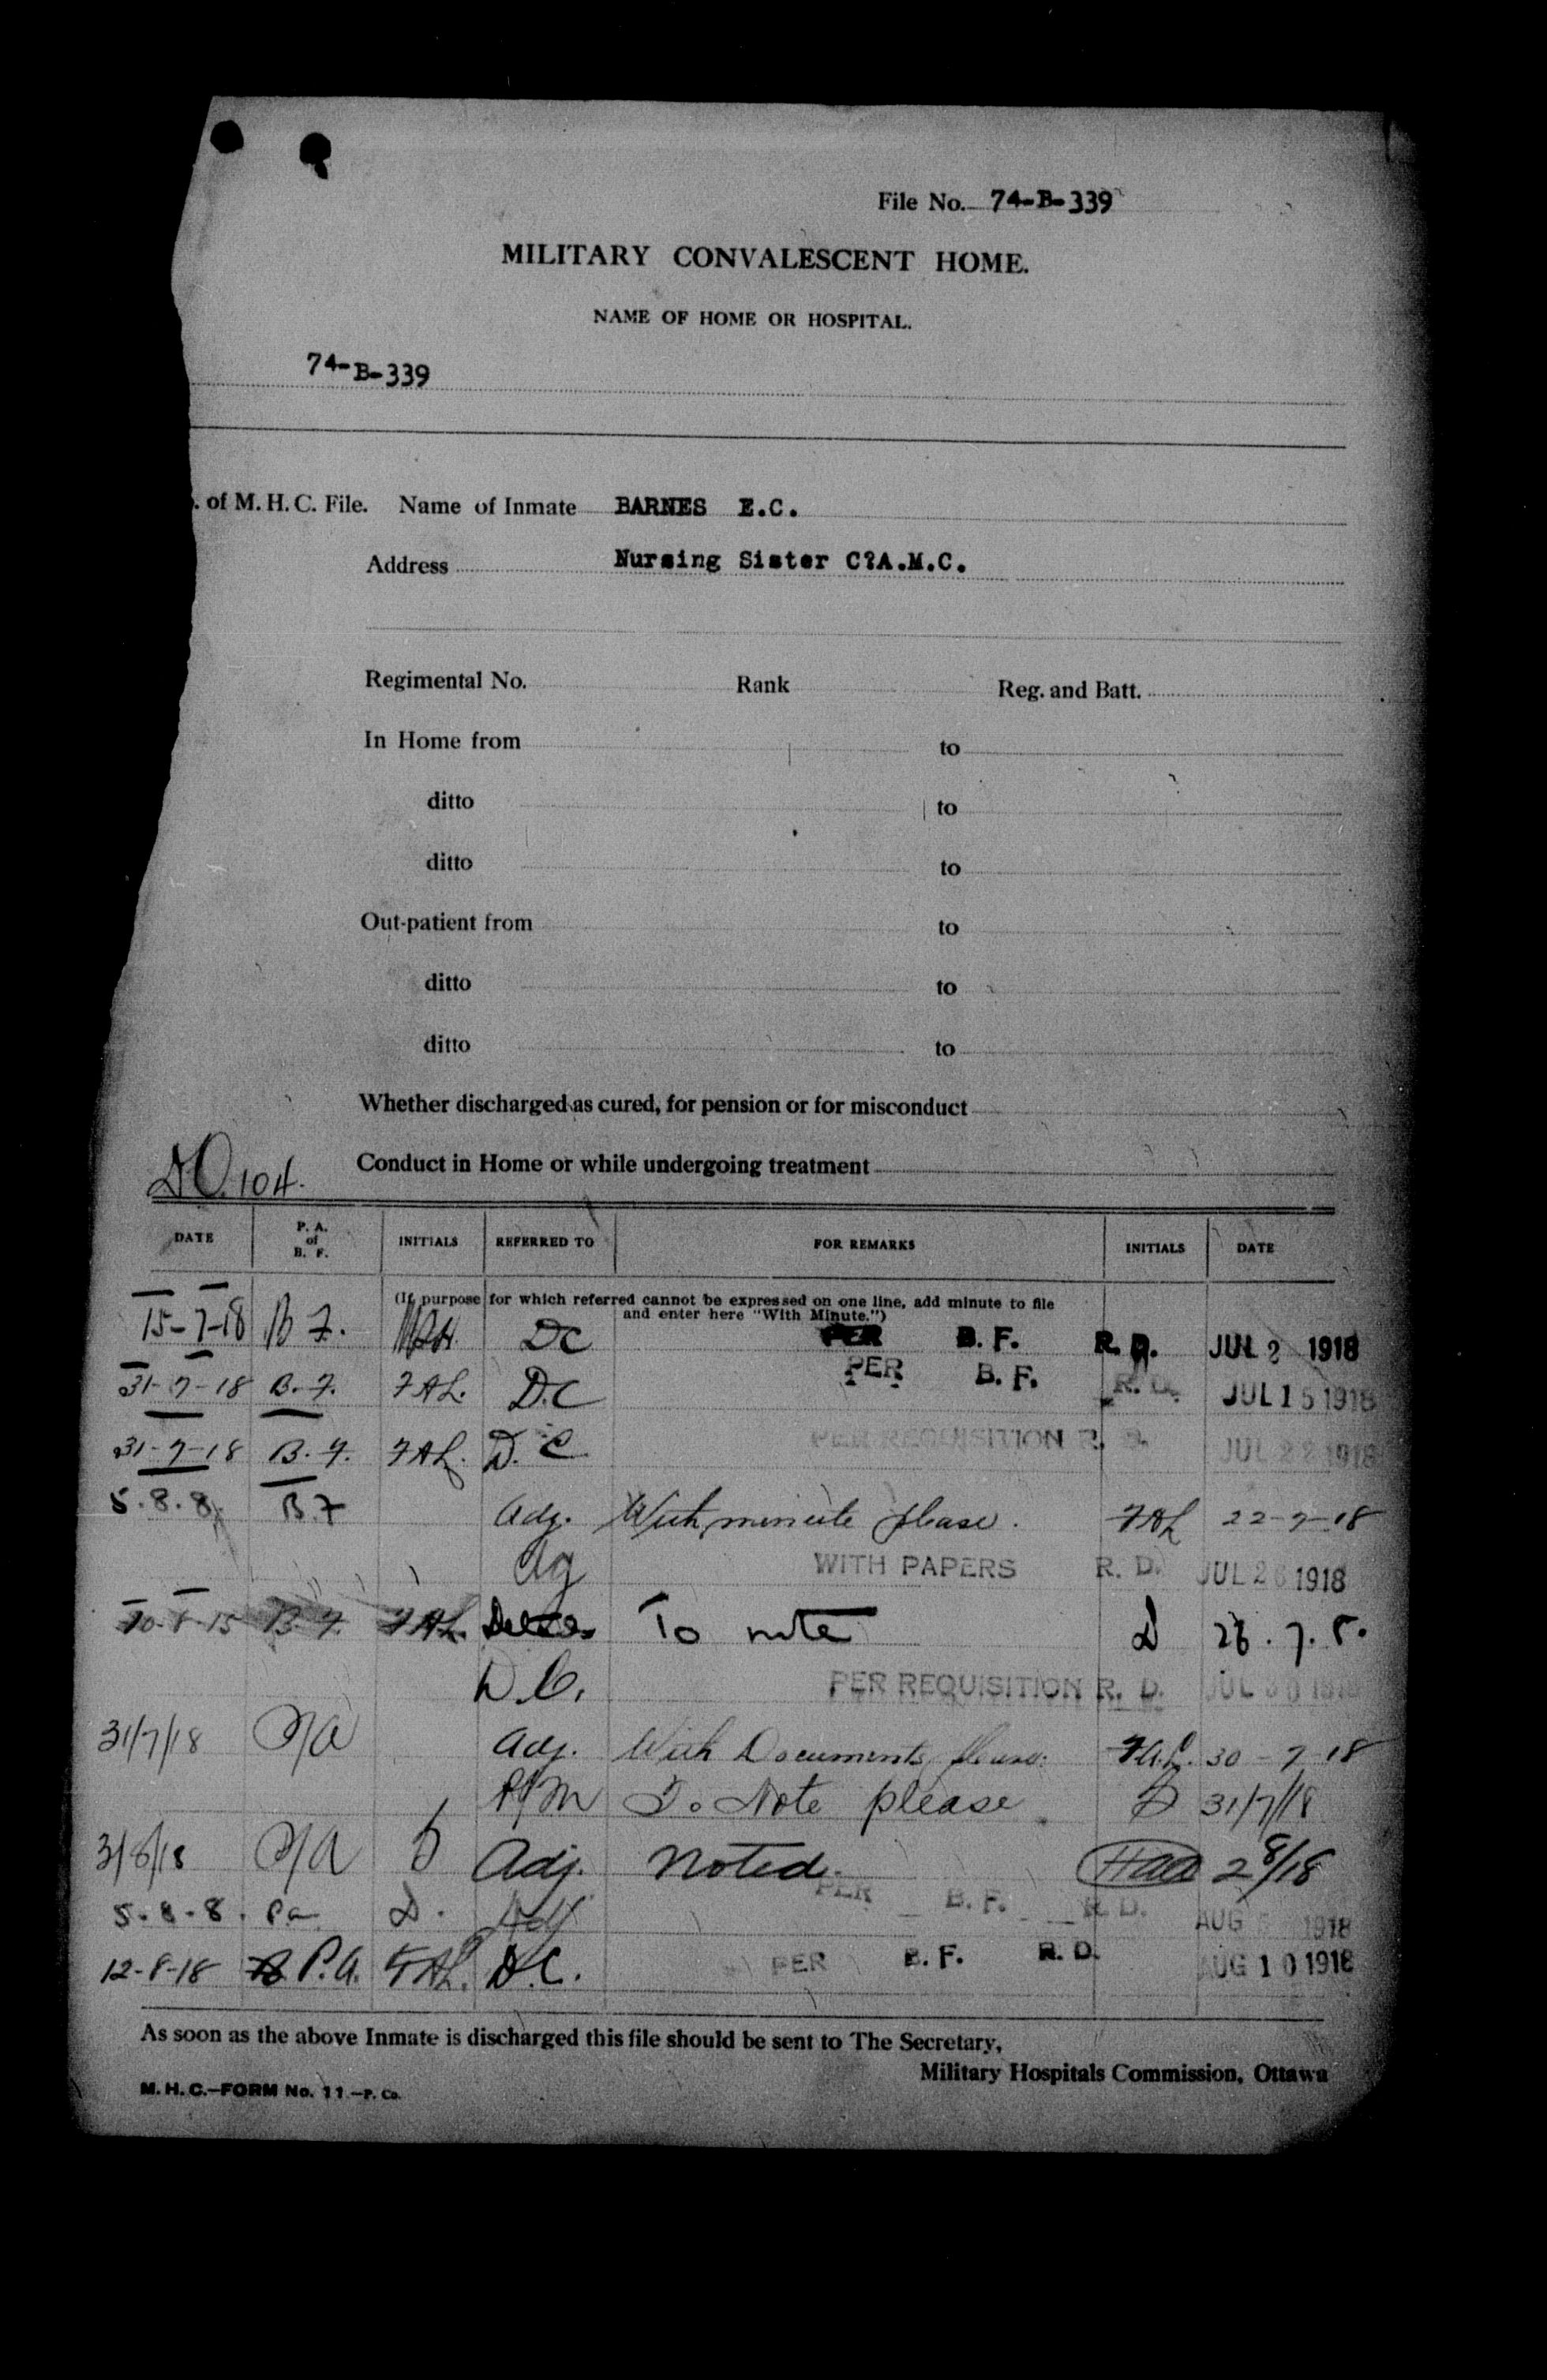 File No. 74-B-339
MILITARY CONVALESCENT HOME.
NAME OF HOME OR HOSPITAL.
74-B-339
. of M. H. C. File. Name of Inmate BARNES E.C.
Address Nursing Sister C?A.M.C.
Regimental No. Rank Reg. and Batt.
In Home from to
ditto to
ditto to
Out-patient from to
ditto to
ditto to
Whether discharged as cured, for pension or for misconduct
Conduct in Home or while undergoing treatment
104.
DATE P. A. of B. F. INITIALS REFERRED TO FOR REMARKS INITIALS DATE
(If purpose for which referred cannot be expressed on one line, add minute to file
and enter here "With Minute.")
15-7-18 B F. DC PER B. F. R. D. JUL 2 1918
31-7-18 B. F. FAL. D.C PER B. F. R. D. JUL 15 1918
31-7-18 B. F. FAL. D.C PER REQUISITION R. D. JUL 22 1918
5.8.8. B.F Adj. With minute please. FAL 22-7-18
WITH PAPERS R. D. JUL 26 1918
B. F. FAL. To note D 26.7.8.
D.C. PER REQUISITION R. D. JUL 30 1918
31/7/18 P/A Adj. With Documents please. F.A.L. 30-7-18
To Note please 31/7/18
3/8/18 P/A Adj. Noted. 2/8/18
5-8-8. Pa D. Adj PER B. F. R. D. AUG 1918
12-8-18 P.A. FAL. D.C. PER B. F. R. D. AUG 10 1918
As soon as the above Inmate is discharged this file should be sent to The Secretary,
Military Hospitals Commission, Ottawa
M. H. C.—FORM No. 11.—P. Co.